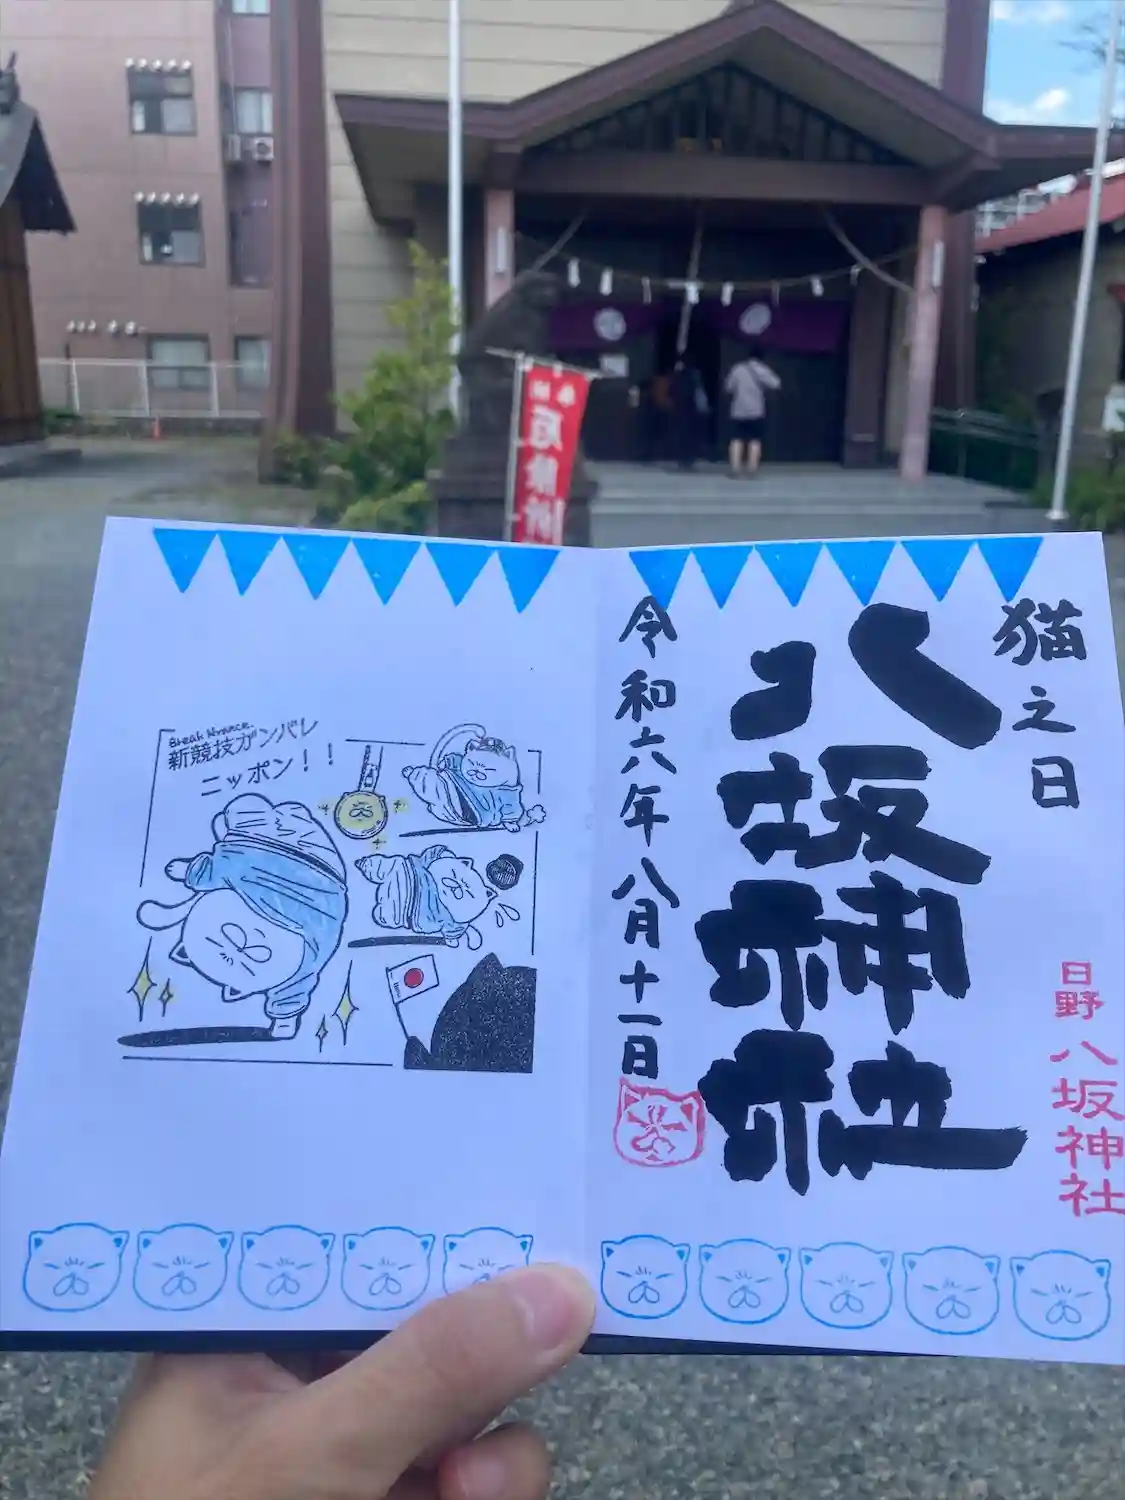 猫之日
八坂神社
令和六年八月十一日
日野八坂神社
Break Nyance.
新競技ガンバレ
ニッポン!!